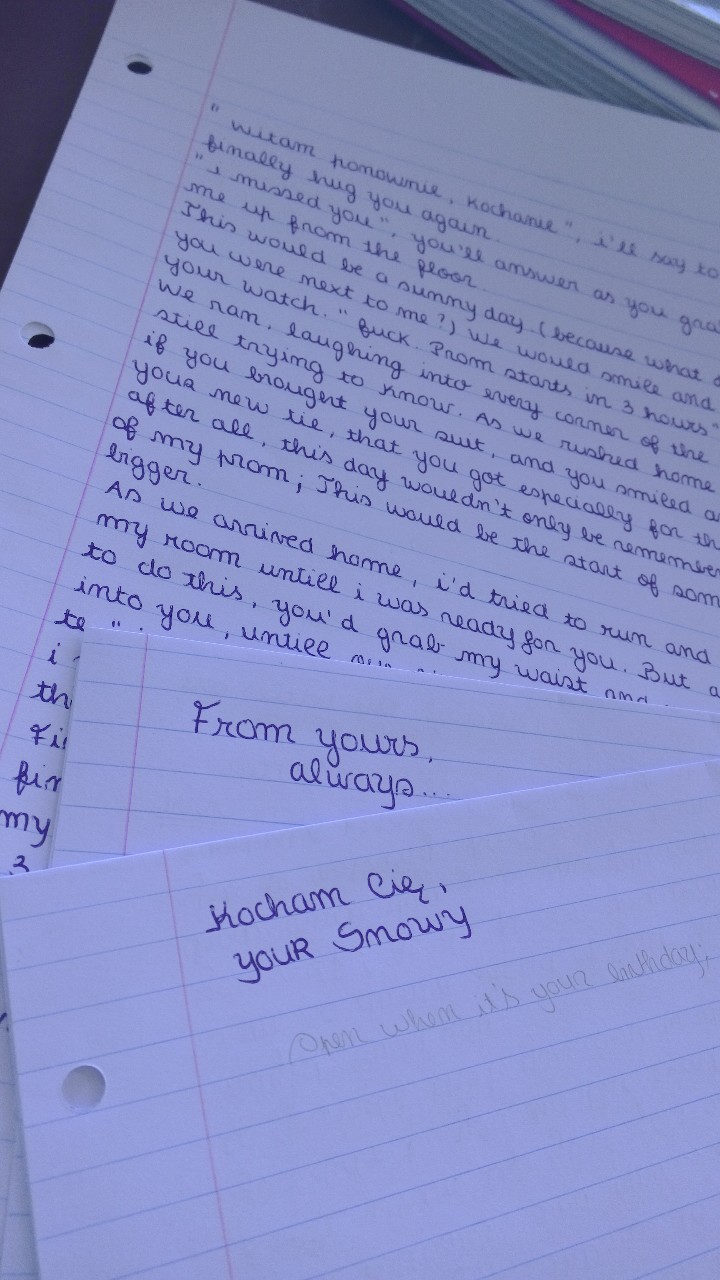 " witam ponownie, kochanie", i'll say to
finally hug you again.
"i missed you", you'll answer as you gra
me up from the floor.
This would be a sunny day (because what
you were next to me?) We would smile and
your watch. "Fuck. Prom starts in 3 hours"
We ran, laughing into every corner of the
still trying to know. As we rushed home
if you brought your suit, and you smiled a
your new tie, that you got especially for th
after all, this day wouldn't only be remember
of my prom; This would be the start of som
bigger.
As we arrived home, i'd tried to run and
my room untill i was ready for you. But a
to do this, you'd grab my waist and
into you, untill
te".
i
th
Fi
fin
my
3
From yours,
always...
Kocham Cię,
YOUR Snowy
Open when it's your birthday;